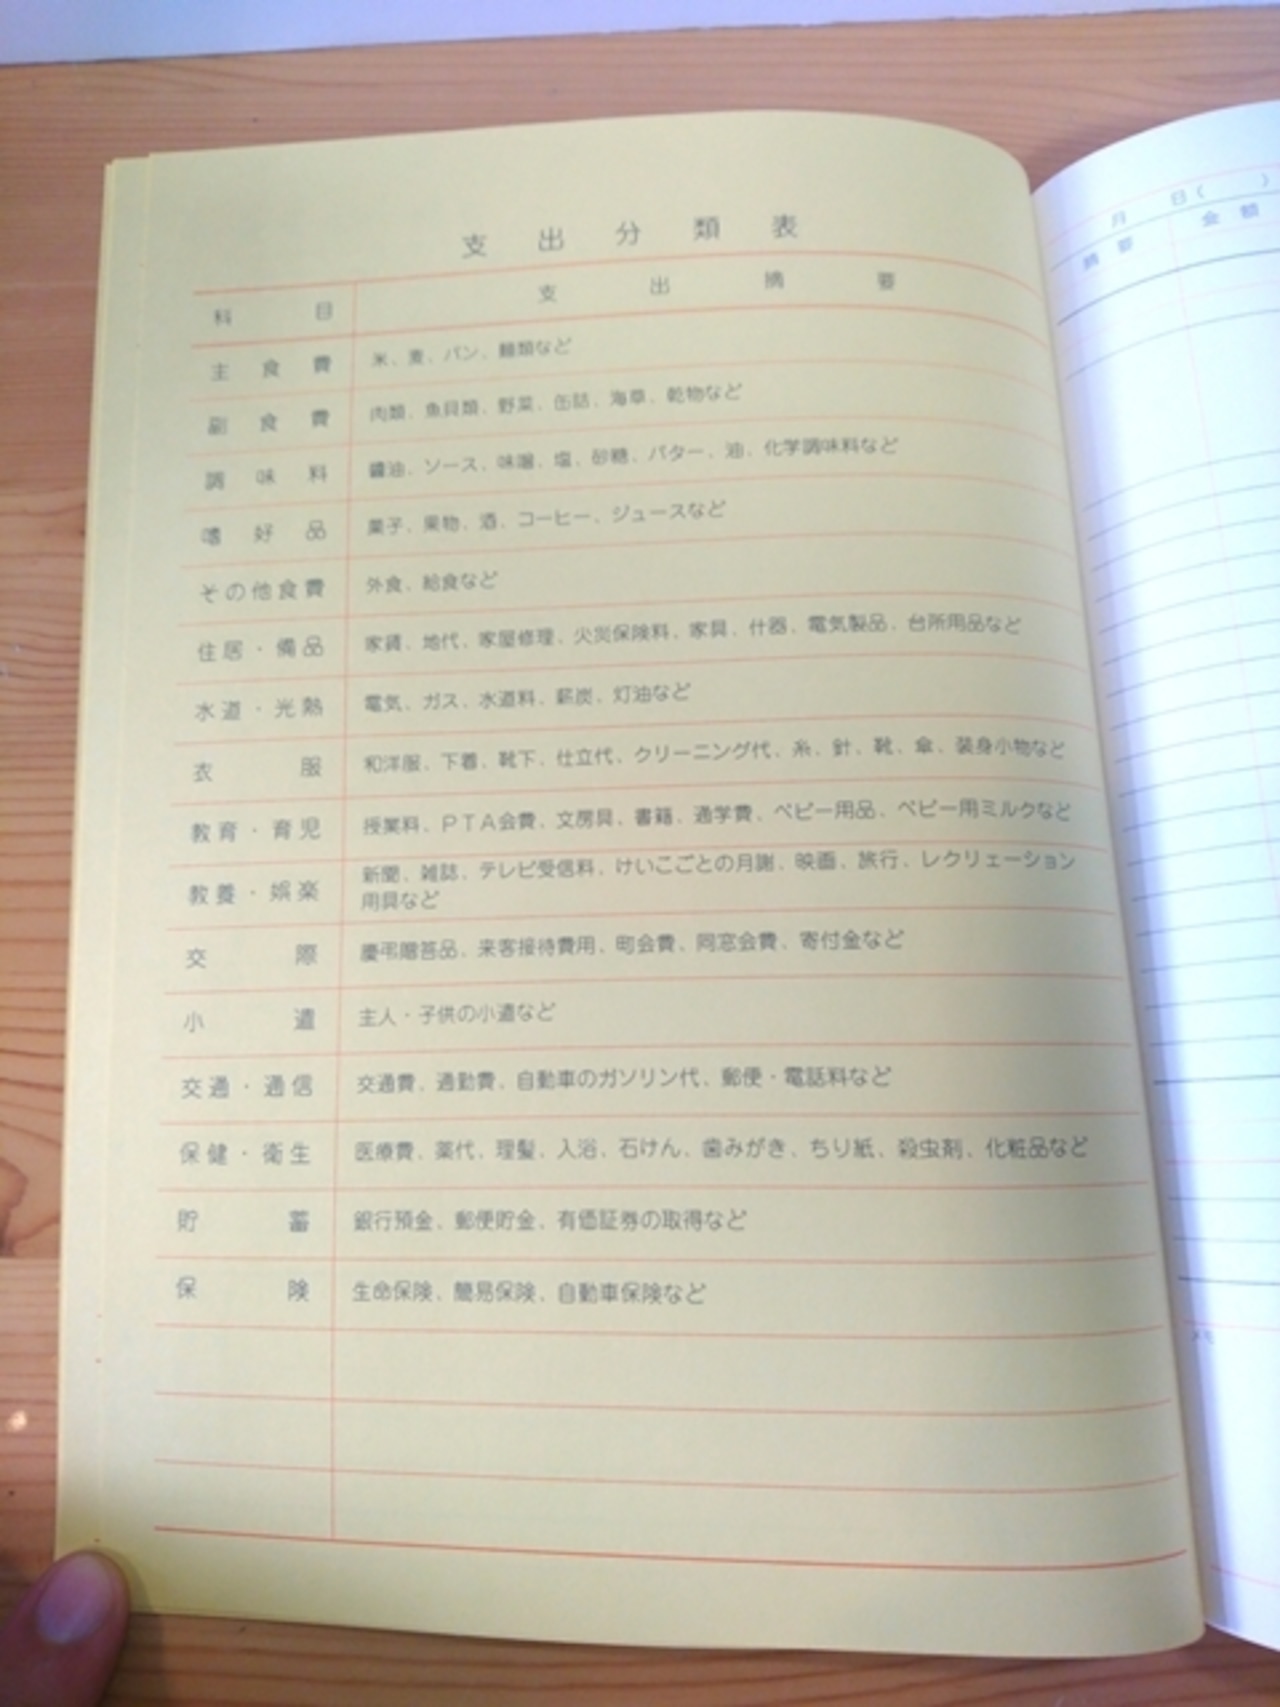 支出分類表
科目 支出摘要
主食費 米、麦、パン、麺類など
副食費 肉類、魚貝類、野菜、缶詰、海草、乾物など
調味料 醤油、ソース、味噌、塩、砂糖、バター、油、化学調味料など
嗜好品 菓子、果物、酒、コーヒー、ジュースなど
その他食費 外食、給食など
住居・備品 家賃、地代、家屋修理、火災保険料、家具、什器、電気製品、台所用品など
水道・光熱 電気、ガス、水道料、薪炭、灯油など
衣服 和洋服、下着、靴下、仕立代、クリーニング代、糸、針、靴、傘、装身小物など
教育・育児 授業料、PTA会費、文房具、書籍、通学費、ベビー用品、ベビー用ミルクなど
教養・娯楽 新聞、雑誌、テレビ受信料、けいこごとの月謝、映画、旅行、レクリェーション
用具など
交際 慶弔贈答品、来客接待費用、町会費、同窓会費、寄付金など
小遣 主人・子供の小遣など
交通・通信 交通費、通勤費、自動車のガソリン代、郵便・電話料など
保健・衛生 医療費、薬代、理髪、入浴、石けん、歯みがき、ちり紙、殺虫剤、化粧品など
貯蓄 銀行預金、郵便貯金、有価証券の取得など
保険 生命保険、簡易保険、自動車保険など
月 日( )
摘要 金額
メモ